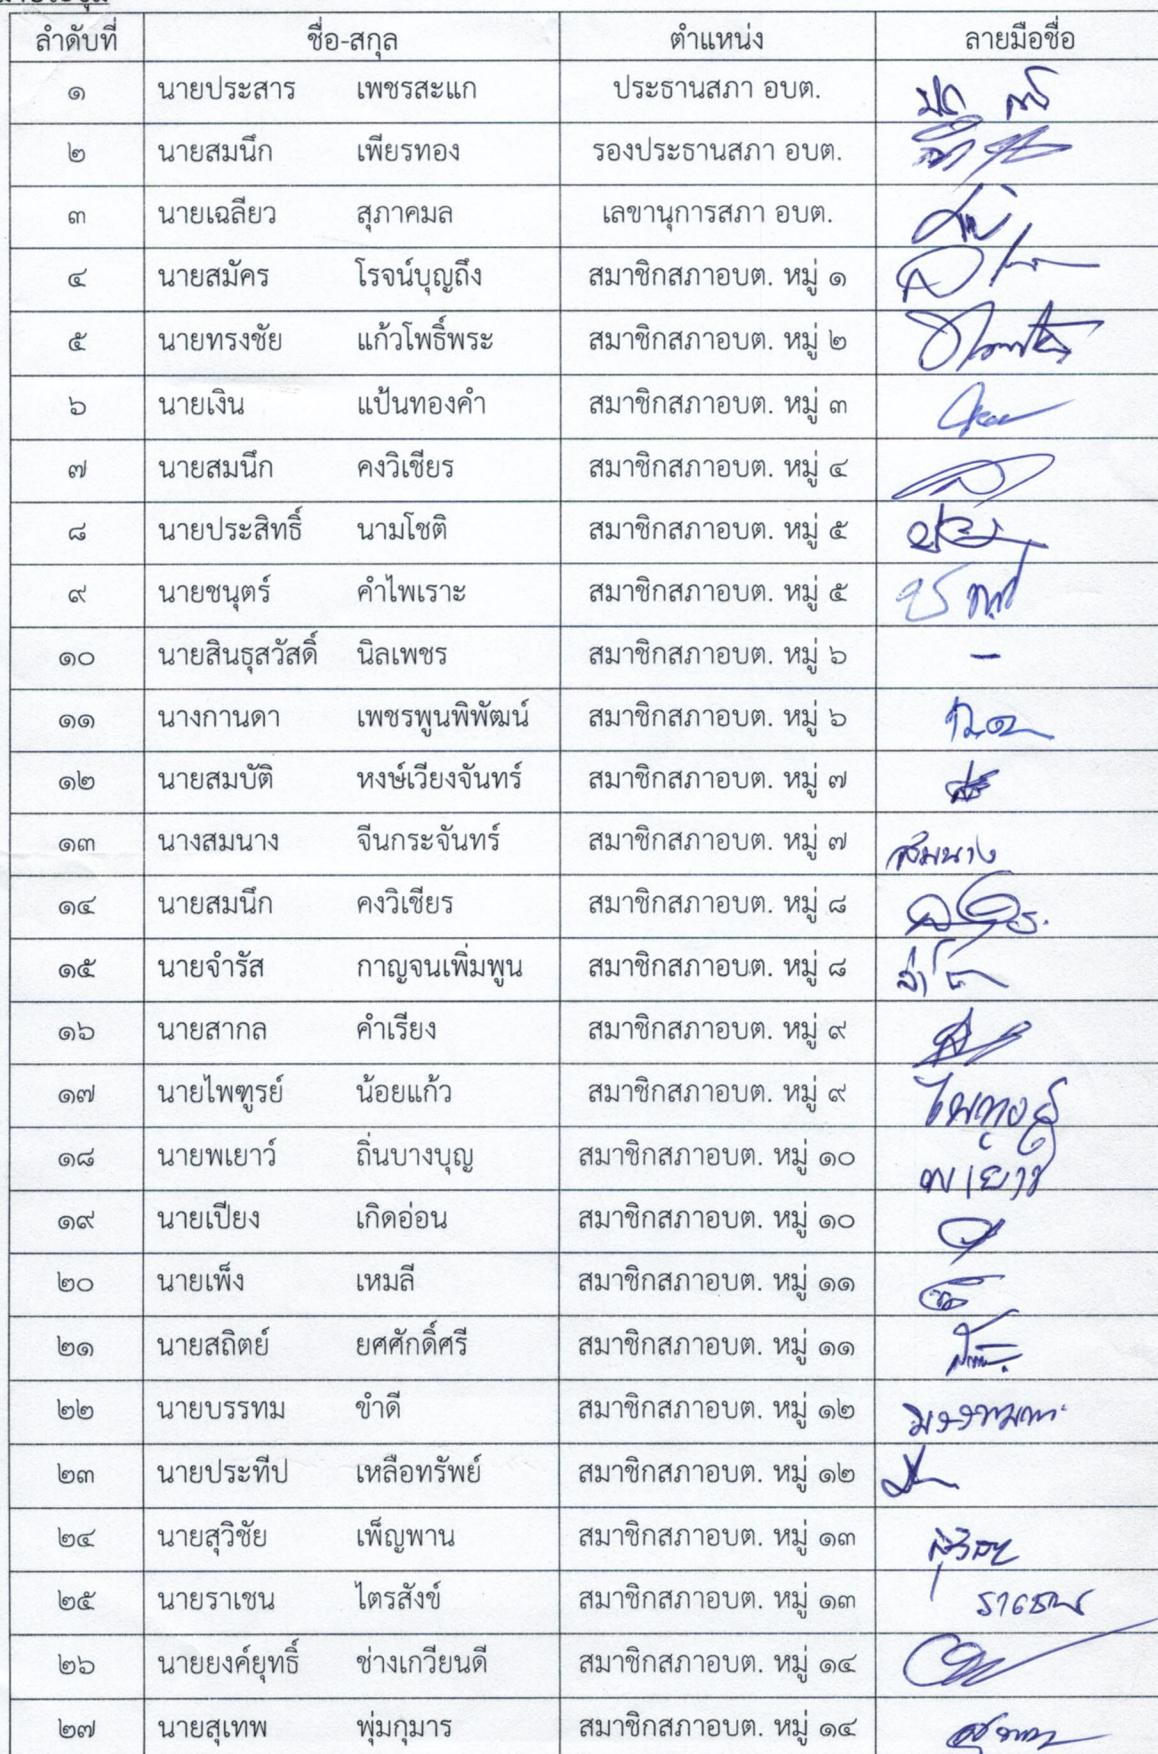 ลำดับที่ ชื่อ-สกุล ตำแหน่ง ลายมือชื่อ
๑ นายประสาร เพชรสะแก ประธานสภา อบต.
๒ นายสมนึก เพียรทอง รองประธานสภา อบต.
๓ นายเฉลียว สุภาคมล เลขานุการสภา อบต.
๔ นายสมัคร โรจน์บุญถึง สมาชิกสภาอบต. หมู่ ๑
๕ นายทรงชัย แก้วโพธิ์พระ สมาชิกสภาอบต. หมู่ ๒
๖ นายเงิน แป้นทองคำ สมาชิกสภาอบต. หมู่ ๓
๗ นายสมนึก คงวิเชียร สมาชิกสภาอบต. หมู่ ๔
๘ นายประสิทธิ์ นามโชติ สมาชิกสภาอบต. หมู่ ๕
๙ นายชนุตร์ คำไพเราะ สมาชิกสภาอบต. หมู่ ๕
๑๐ นายสินธุสวัสดิ์ นิลเพชร สมาชิกสภาอบต. หมู่ ๖ -
๑๑ นางกานดา เพชรพูนพิพัฒน์ สมาชิกสภาอบต. หมู่ ๖
๑๒ นายสมบัติ หงษ์เวียงจันทร์ สมาชิกสภาอบต. หมู่ ๗
๑๓ นางสมนาง จีนกระจันทร์ สมาชิกสภาอบต. หมู่ ๗ สมนาง
๑๔ นายสมนึก คงวิเชียร สมาชิกสภาอบต. หมู่ ๘
๑๕ นายจำรัส กาญจนเพิ่มพูน สมาชิกสภาอบต. หมู่ ๘
๑๖ นายสากล คำเรียง สมาชิกสภาอบต. หมู่ ๙
๑๗ นายไพฑูรย์ น้อยแก้ว สมาชิกสภาอบต. หมู่ ๙
๑๘ นายพเยาว์ ถิ่นบางบุญ สมาชิกสภาอบต. หมู่ ๑๐
๑๙ นายเปียง เกิดอ่อน สมาชิกสภาอบต. หมู่ ๑๐
๒๐ นายเพ็ง เหมลี สมาชิกสภาอบต. หมู่ ๑๑
๒๑ นายสถิตย์ ยศศักดิ์ศรี สมาชิกสภาอบต. หมู่ ๑๑
๒๒ นายบรรทม ขำดี สมาชิกสภาอบต. หมู่ ๑๒
๒๓ นายประทีป เหลือทรัพย์ สมาชิกสภาอบต. หมู่ ๑๒
๒๔ นายสุวิชัย เพ็ญพาน สมาชิกสภาอบต. หมู่ ๑๓
๒๕ นายราเชน ไตรสังข์ สมาชิกสภาอบต. หมู่ ๑๓
๒๖ นายยงค์ยุทธิ์ ช่างเกวียนดี สมาชิกสภาอบต. หมู่ ๑๔
๒๗ นายสุเทพ พุ่มกุมาร สมาชิกสภาอบต. หมู่ ๑๔